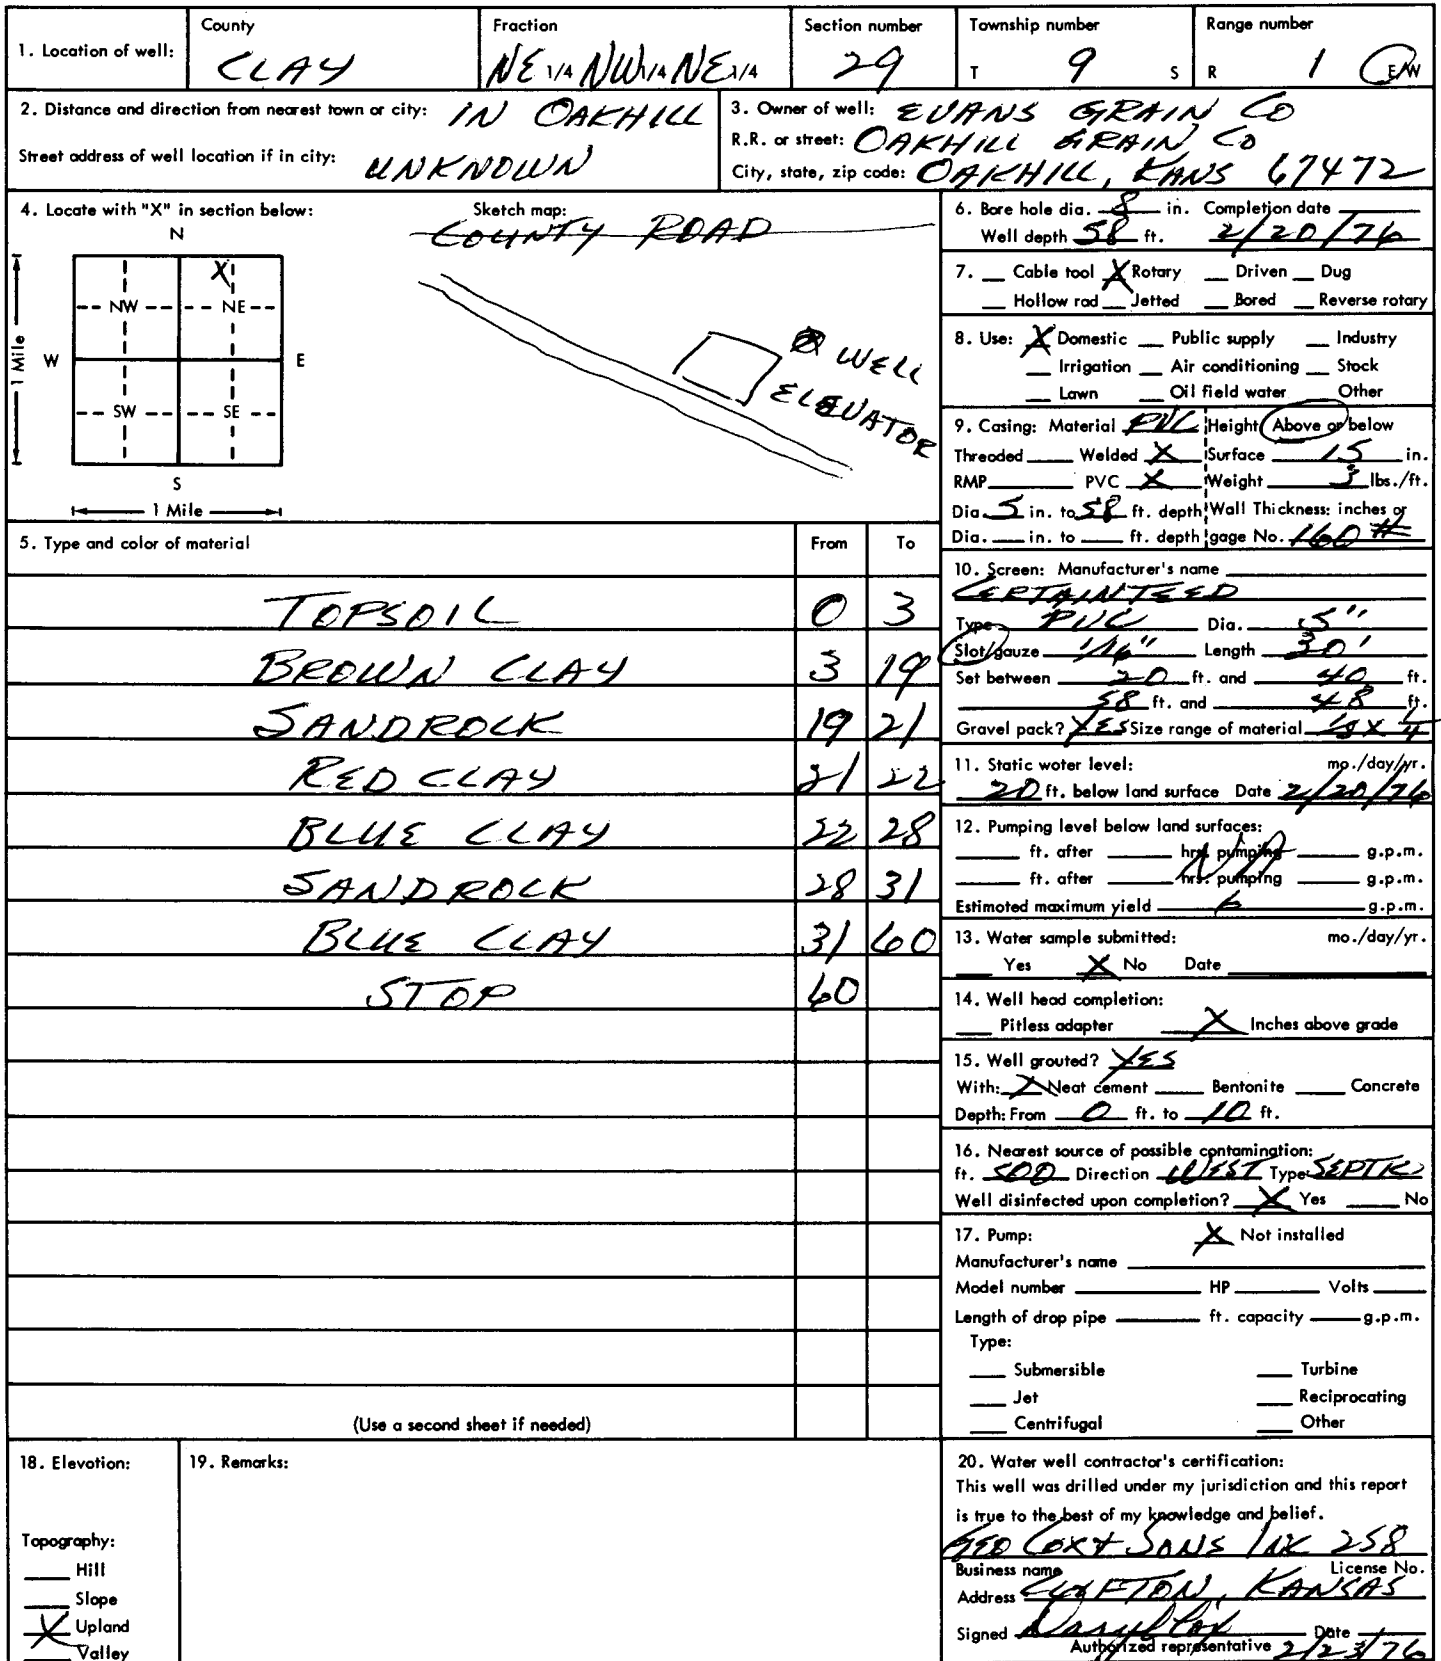 1. Location of well: County CLAY Fraction NE 1/4 NW 1/4 NE 1/4 Section number 29 Township number T 9 S Range number R 1 E/W
2. Distance and direction from nearest town or city: IN OAKHILL
Street address of well location if in city: UNKNOWN
3. Owner of well: EVANS GRAIN CO
R.R. or street: OAKHILL GRAIN CO
City, state, zip code: OAKHILL, KANS 67472
4. Locate with "X" in section below:
N
X
NW NE
W E
SW SE
S
1 Mile
1 Mile
Sketch map:
COUNTY ROAD
WELL
ELEVATOR
5. Type and color of material From To
TOPSOIL 0 3
BROWN CLAY 3 19
SANDROCK 19 21
RED CLAY 21 22
BLUE CLAY 22 28
SANDROCK 28 31
BLUE CLAY 31 60
STOP 60
(Use a second sheet if needed)
6. Bore hole dia. 8 in. Completion date
Well depth 58 ft. 2/20/76
7. Cable tool X Rotary Driven Dug
Hollow rod Jetted Bored Reverse rotary
8. Use: X Domestic Public supply Industry
Irrigation Air conditioning Stock
Lawn Oil field water Other
9. Casing: Material PVC Height Above or below
Threaded Welded X Surface 15 in.
RMP PVC X Weight 3 lbs./ft.
Dia. 5 in. to 58 ft. depth Wall Thickness: inches or
Dia. in. to ft. depth gage No. 160 #
10. Screen: Manufacturer's name
CERTAINTEED
Type PVC Dia. 5"
Slot/gauze 1/16" Length 30'
Set between 20 ft. and 40 ft.
58 ft. and 48 ft.
Gravel pack? YES Size range of material 1/8 X 1/4
11. Static water level: mo./day/yr.
20 ft. below land surface Date 2/20/76
12. Pumping level below land surfaces:
ft. after hrs. pumping g.p.m.
N/A
ft. after hrs. pumping g.p.m.
Estimated maximum yield 6 g.p.m.
13. Water sample submitted: mo./day/yr.
Yes X No Date
14. Well head completion:
Pitless adapter X Inches above grade
15. Well grouted? YES
With: X Neat cement Bentonite Concrete
Depth: From 0 ft. to 10 ft.
16. Nearest source of possible contamination:
ft. 500 Direction WEST Type SEPTIC
Well disinfected upon completion? X Yes No
17. Pump: X Not installed
Manufacturer's name
Model number HP Volts
Length of drop pipe ft. capacity g.p.m.
Type:
Submersible Turbine
Jet Reciprocating
Centrifugal Other
18. Elevation:
Topography:
Hill
Slope
X Upland
Valley
19. Remarks:
20. Water well contractor's certification:
This well was drilled under my jurisdiction and this report
is true to the best of my knowledge and belief.
GEO COX & SONS INC 258
Business name License No.
Address CLIFTON, KANSAS
Signed Daryl Cox Date
Authorized representative 2/23/76